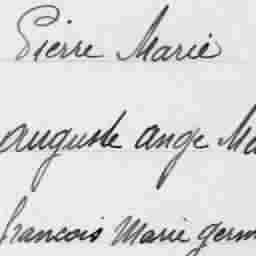 Pierre Marie
auguste ange Ma
francois Marie germ